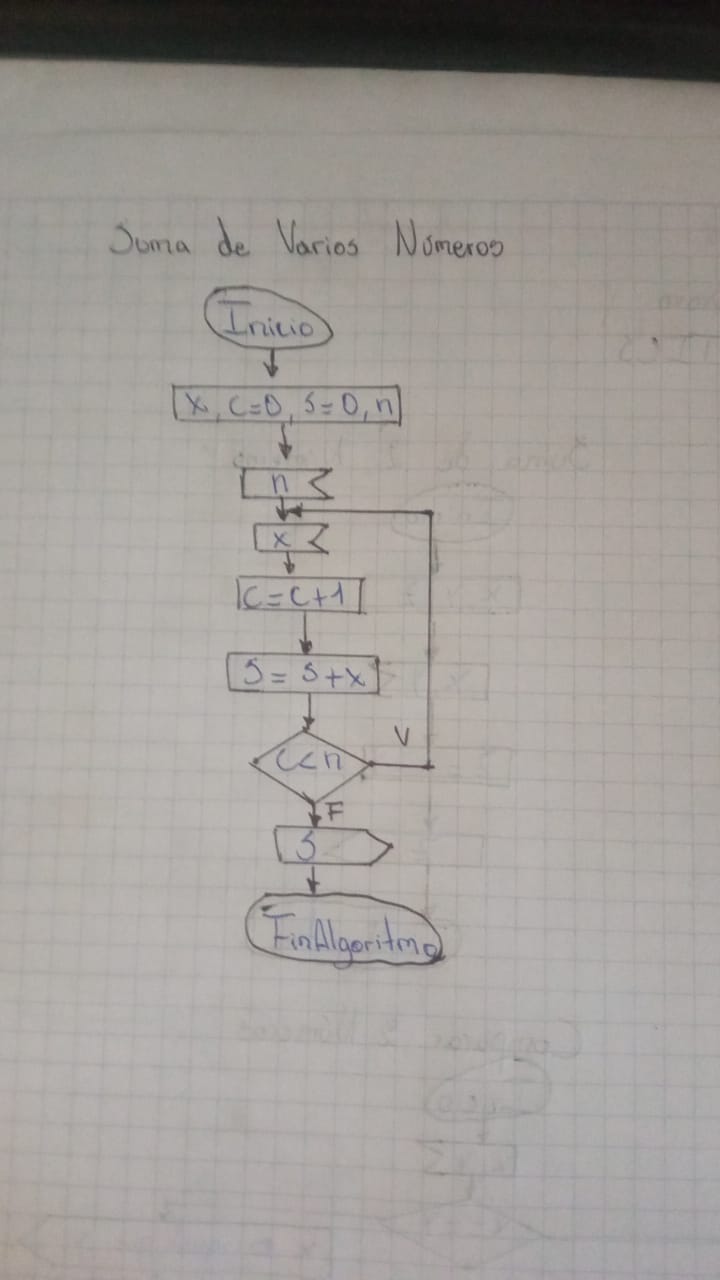 Suma de Varios Números
Inicio
x, c=0, s=0, n
n
x
c=c+1
S = S+x
c<n
V
F
S
FinAlgoritmo